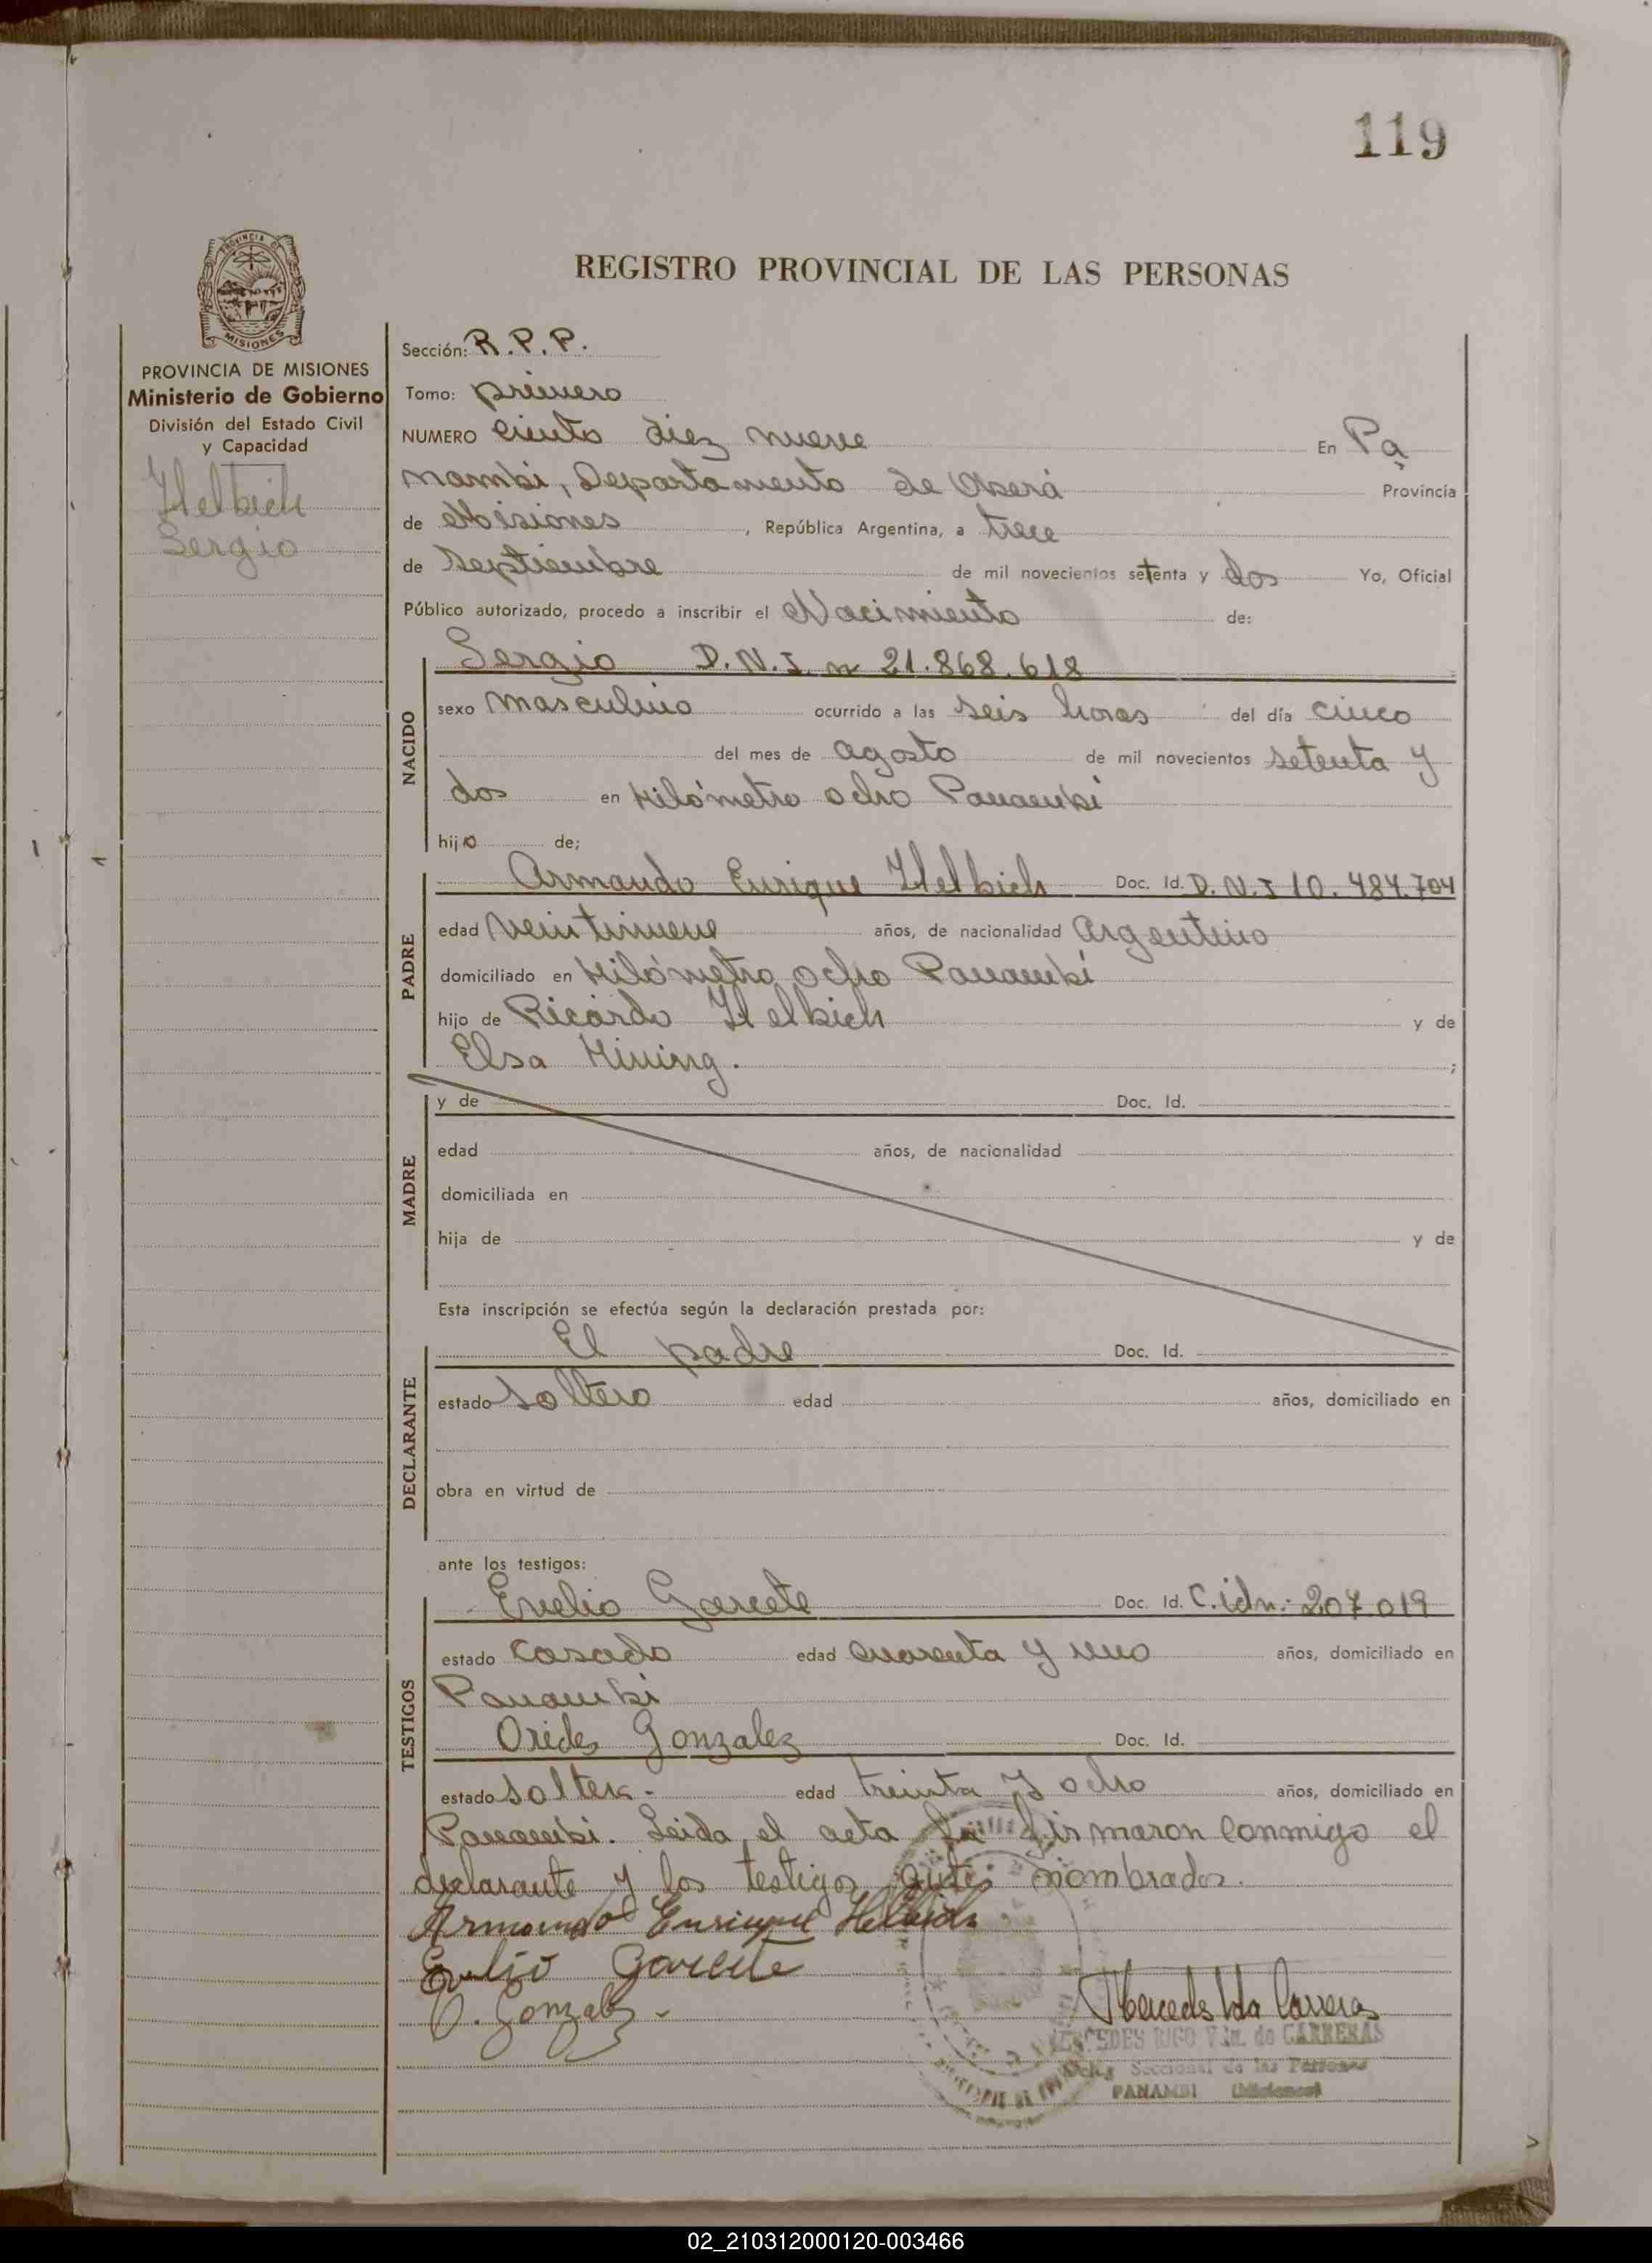 119
PROVINCIA DE
MISIONES
REGISTRO PROVINCIAL DE LAS PERSONAS
PROVINCIA DE MISIONES
Ministerio de Gobierno
División del Estado Civil
y Capacidad
Helbich
Sergio
Sección: R.P.P.
Tomo: primero
NUMERO ciento diez nueve En Pa
nambi, Departamento de Oberá Provincia
de Misiones, República Argentina, a trece
de Septiembre de mil novecientos setenta y dos Yo, Oficial
Público autorizado, procedo a inscribir el Nacimiento de:
NACIDO
Sergio D.N.I. n 21.868.618
sexo masculino ocurrido a las seis horas del día cinco
del mes de agosto de mil novecientos setenta y
dos en Kilómetro ocho Panambí
hijo de;
PADRE
Armando Enrique Helbich Doc. Id. D.N.I 10.484.704
edad veintinueve años, de nacionalidad Argentino
domiciliado en Kilómetro ocho Panambí
hijo de Ricardo Helbich y de
Elsa Hining. ;
MADRE
y de Doc. Id.
edad años, de nacionalidad
domiciliada en
hija de y de
Esta inscripción se efectúa según la declaración prestada por:
DECLARANTE
El padre Doc. Id.
estado soltero edad años, domiciliado en
obra en virtud de
ante los testigos:
TESTIGOS
Evelio Garcete Doc. Id. C.idn.: 207.019
estado casado edad cuarenta y uno años, domiciliado en
Panambi
Orides Gonzalez Doc. Id.
estado soltera - edad treinta y ocho años, domiciliado en
Panambi. Leida el acta la firmaron conmigo el
declarante y los testigos antes nombrados.
Armando Enrique Helbich
Evelio Garcete
O. Gonzalez -
Mercedes Vda Carreras
MERCEDES RIGO V de CARRERAS
Seccional de las Personas
PANAMBI (Misiones)
02_210312000120-003466